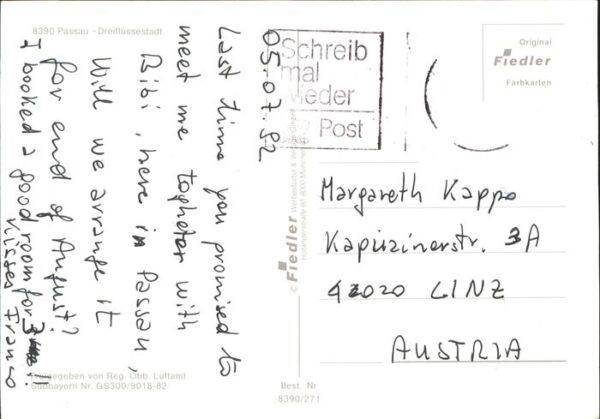 8390 Passau - Dreiflüssestadt
05-07-92
Last time you promised to
meet me togheter with
Bibi, here in Passau,
Will we arrange it
for end of August?
I booked a good room for 3 !!
Kisses Franco
Freigegeben von Reg. Obb. Luftamt
Südbayern Nr. GS300/9018-82
Schreib
mal
wieder
Post
© Fiedler
Best. Nr
8390/271
Original
Fiedler
Farbkarten
Margareth Kappo
Kapuzinerstr. 3A
42020 LINZ
AUSTRIA